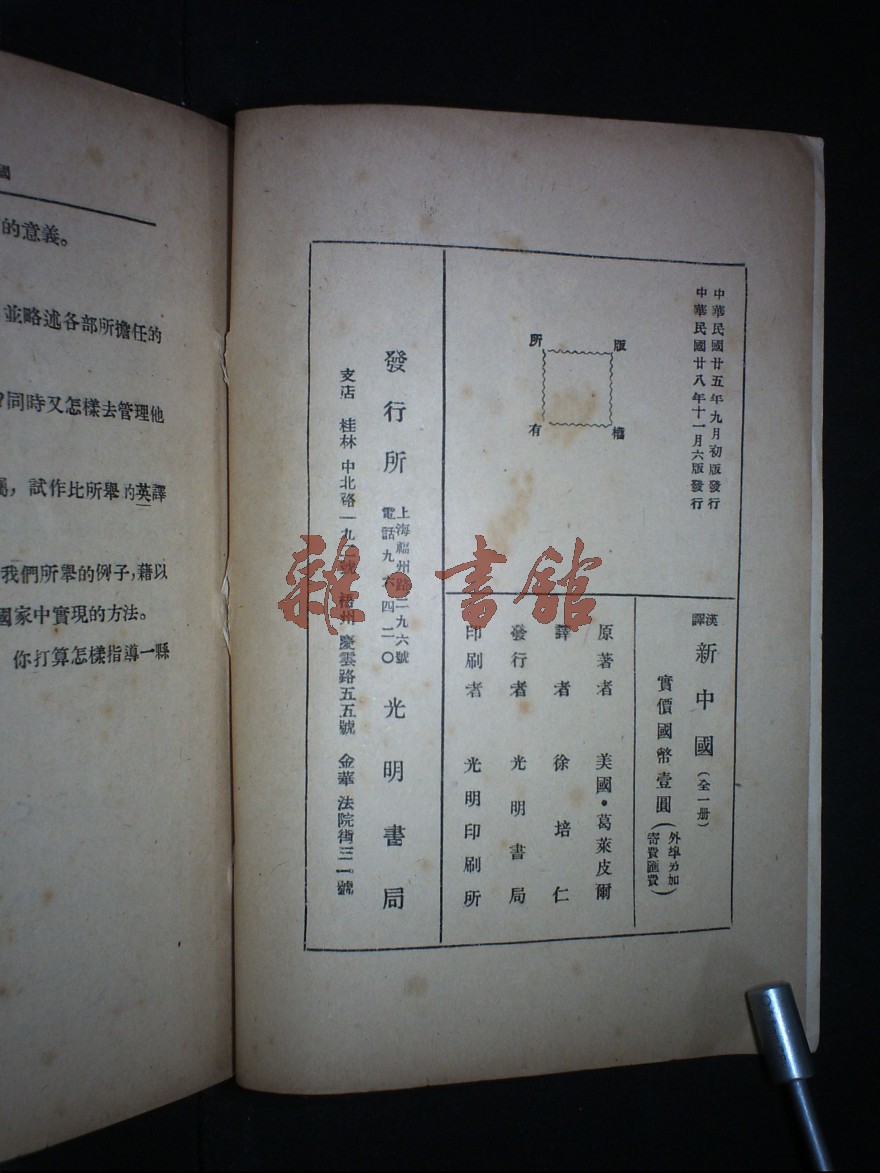 國
的意義。
並略述各部所擔任的
?同時又怎樣去管理他
試作比所舉的英譯
我們所舉的例子,藉以
國家中實現的方法。
你打算怎樣指導一縣
中華民國廿五年九月初版發行
中華民國廿八年十一月六版發行
版權
所有
漢譯 新中國 (全一册)
實價國幣壹圓 (外埠另加寄費匯費)
原著者 美國·葛萊皮爾
譯者 徐培仁
發行者 光明書局
印刷者 光明印刷所
發行所 光明書局
上海福州路二九六號
電話九六四二〇
支店 桂林 中北路一九一號 梧州 慶雲路五五號 金華 法院街三一號
雜·書館